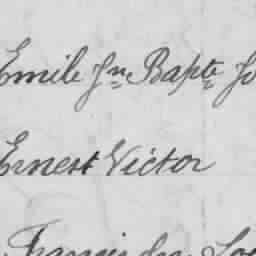 Emile Jn Bapte Jo
Ernest Victor
Francis Jn